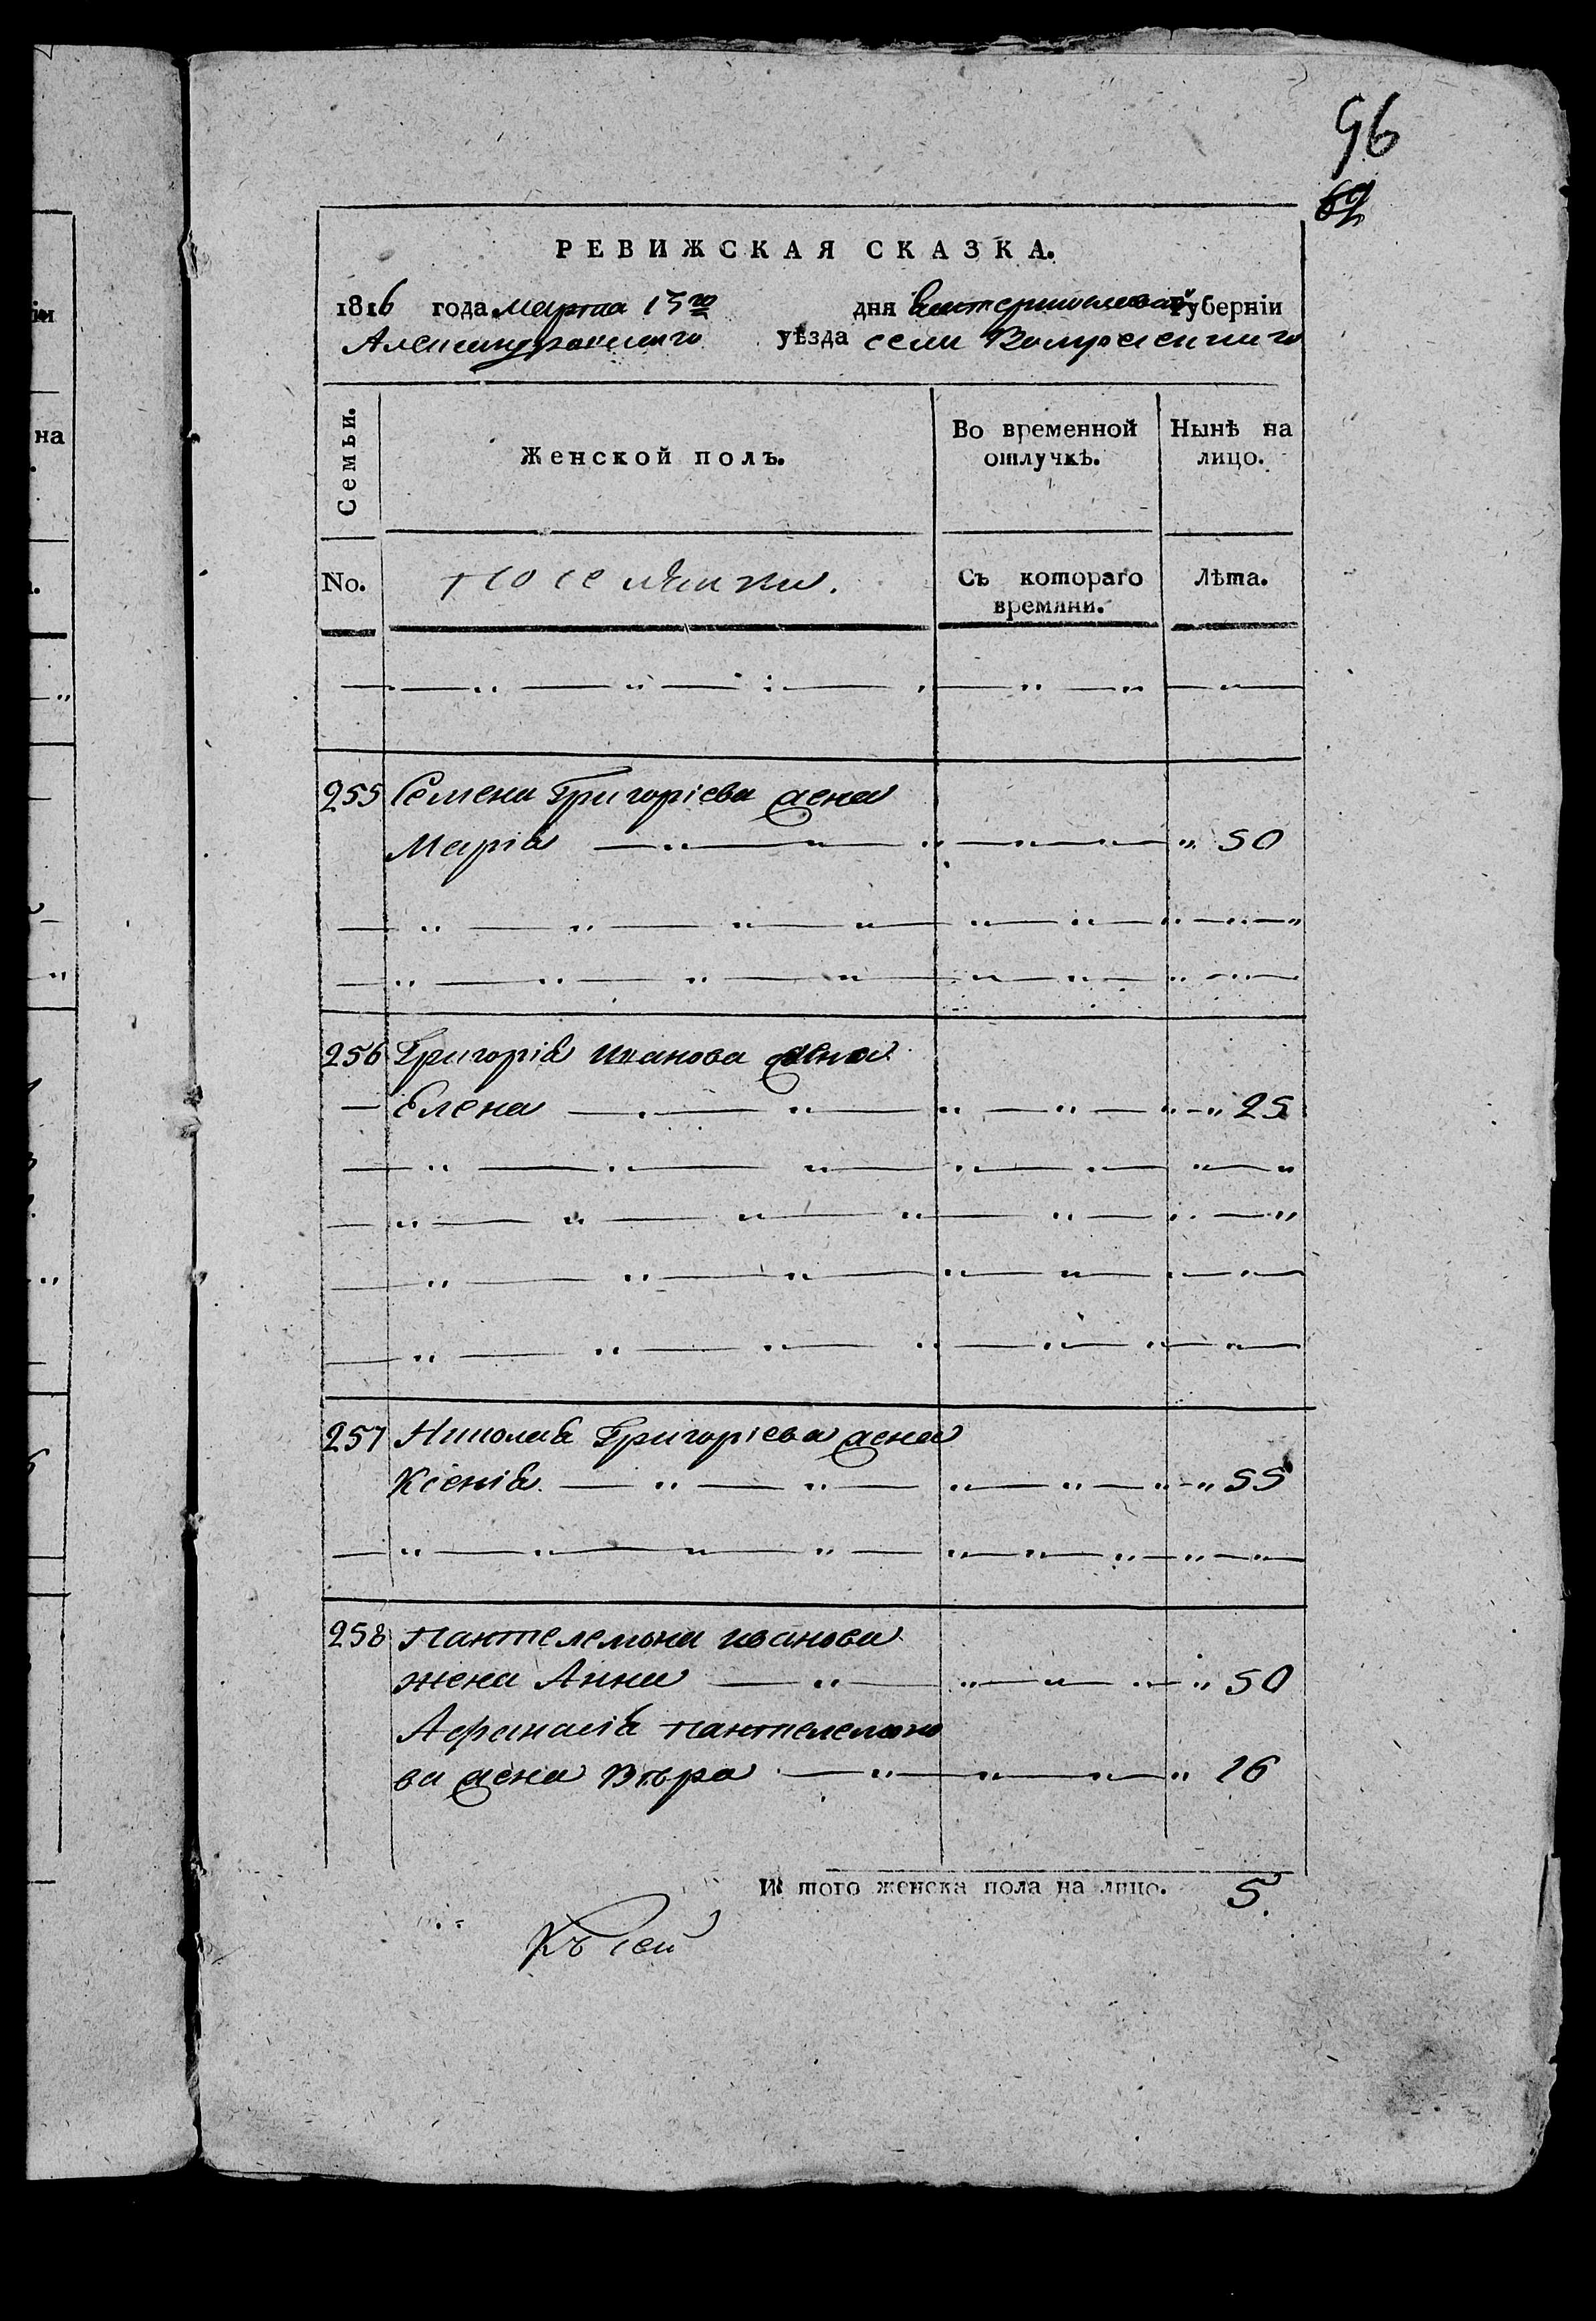 96
62
РЕВИЖСКАЯ СКАЗКА.
1816 года марта 15го дня Екатеринославской губерніи
Александровского уѣзда села Воскресенского
Семьи.
Женской полъ.
Во временной отлучкѣ.
Нынѣ на лицо.
No.
поселянки.
Съ котораго времяни.
Лѣта.
255 Семена Григоріева жена
Марія 50
256 Григорія Иванова жена
Елена 25
257 Николая Григоріева жена
Ксенія 55
258 Пантелемона Иванова
жена Анна 50
Афанасія Пантелемоно
ва жена Вѣра 16
И того женска пола на лицо. 5.
Къ сей
на